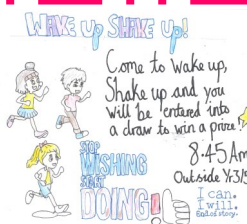 WAKE up SHAKE up!
Come to wake up,
Shake up and you
will be entered into
a draw to win a prize!
8:45 Am
Outside Y3/
STOP
WISHING
START
DOING!
I can.
I will.
End of story.